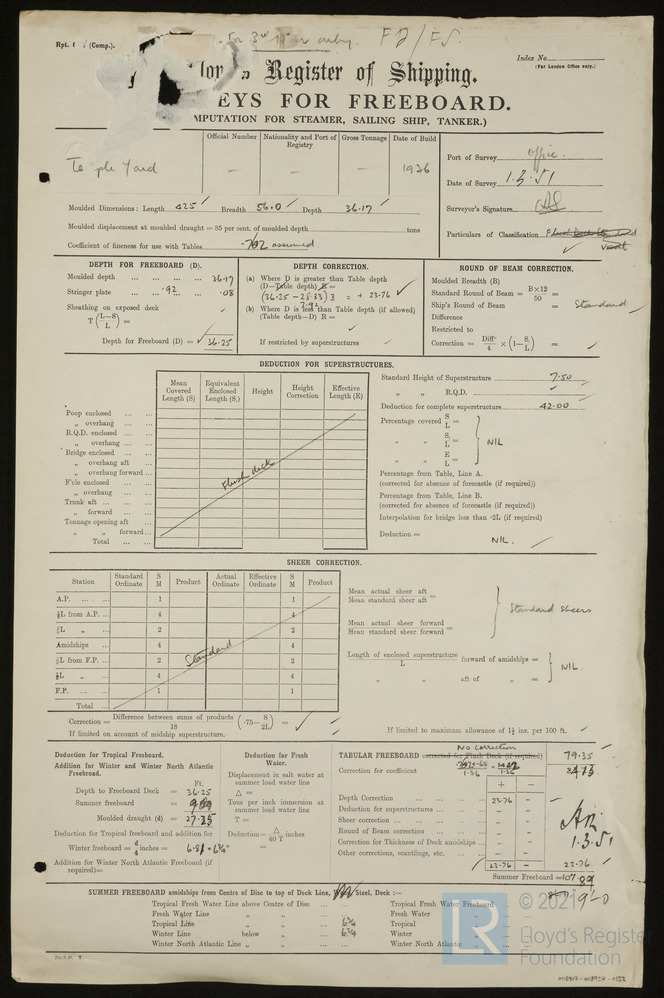 For 3rd only. F2/ES.
Rpt. (Comp.).
Index No.
(For London Office only.)
Register of Shipping.
EYS FOR FREEBOARD.
MPUTATION FOR STEAMER, SAILING SHIP, TANKER.)
Official Number Nationality and Port of Registry Gross Tonnage Date of Build
Temple Yard - - - 1936
Port of Survey Office.
Date of Survey 1.3.51
Surveyor's Signature
Particulars of Classification
Moulded Dimensions: Length 425 Breadth 56.0 Depth 36.17
Moulded displacement at moulded draught = 85 per cent. of moulded depth tons
Coefficient of fineness for use with Tables .702 assumed
DEPTH FOR FREEBOARD (D).
Moulded depth ... 36.17
Stringer plate ... .92 ... .08
Sheathing on exposed deck
T (L-S/L) =
Depth for Freeboard (D) = 36.25
DEPTH CORRECTION.
(a) Where D is greater than Table depth
(D—Table depth) R =
(36.25 - 28.33) 3 = + 23.76
7.92
(b) Where D is less than Table depth (if allowed)
(Table depth—D) R =
If restricted by superstructures
ROUND OF BEAM CORRECTION.
Moulded Breadth (B)
Standard Round of Beam = B×12/50 =
Ship's Round of Beam = Standard
Difference
Restricted to
Correction = Diff/4 × (1-S₁/L) =
DEDUCTION FOR SUPERSTRUCTURES.
Mean Covered Length (S) Equivalent Enclosed Length (S₁) Height Height Correction Effective Length (E)
Poop enclosed
„ overhang
R.Q.D. enclosed
„ overhang
Bridge enclosed
„ overhang aft
„ overhang forward
F'cle enclosed
„ overhang
Trunk aft
„ forward
Tonnage opening aft
„ „ forward
Total
Flush deck
Standard Height of Superstructure 7.50
„ „ R.Q.D.
Deduction for complete superstructure 42.00
Percentage covered S/L =
„ „ S₁/L = NIL
„ „ E/L =
Percentage from Table, Line A.
(corrected for absence of forecastle (if required))
Percentage from Table, Line B.
(corrected for absence of forecastle (if required))
Interpolation for bridge less than ·2L (if required)
Deduction = NIL.
SHEER CORRECTION.
Station Standard Ordinate S M Product Actual Ordinate Effective Ordinate S M Product
A.P. 1 1
⅙L from A.P. 4 4
⅓L „ 2 2
Amidships 4 4
⅓L from F.P. 2 2
⅙L „ 4 4
F.P. 1 1
Total
Standard
Mean actual sheer aft
Mean standard sheer aft =
Mean actual sheer forward
Mean standard sheer forward =
Standard sheers
Length of enclosed superstructure/L forward of amidships =
„ „ aft of „ =
NIL.
Correction = Difference between sums of products/18 (·75- S/2L) =
If limited on account of midship superstructure.
If limited to maximum allowance of 1½ ins. per 100 ft.
Deduction for Tropical Freeboard.
Addition for Winter and Winter North Atlantic Freeboard.
Ft.
Depth to Freeboard Deck = 36.25
Summer freeboard =
Moulded draught (d) = 27.25
Deduction for Tropical freeboard and addition for
Winter freeboard = d/4 inches = 6.81 = 6¾"
Addition for Winter North Atlantic Freeboard (if required)=
Deduction for Fresh Water.
Displacement in salt water at summer load water line
△ =
Tons per inch immersion at summer load water line
T =
Deduction= △/40 T inches
=
TABULAR FREEBOARD corrected for Flush Deck (if required) 79.35
No correction
Correction for coefficient
1.36
+ -
Depth Correction 23.76 -
Deduction for superstructures - -
Sheer correction - -
Round of Beam correction - -
Correction for Thickness of Deck amidships - -
Other corrections, scantlings, etc. - -
23.76 - 23.76
1.3.51
Summer Freeboard = 107.89
9-0
SUMMER FREEBOARD amidships from Centre of Disc to top of Deck Line, Steel, Deck :—
Tropical Fresh Water Line above Centre of Disc
Fresh Water Line „ „
Tropical Line „ „ 6¾
Winter Line below „ 6¾
Winter North Atlantic Line „ „
Tropical Fresh Water Freeboard
Fresh Water „
Tropical „
Winter „
Winter North Atlantic „
LR
© 2021
Lloyd's Register
Foundation